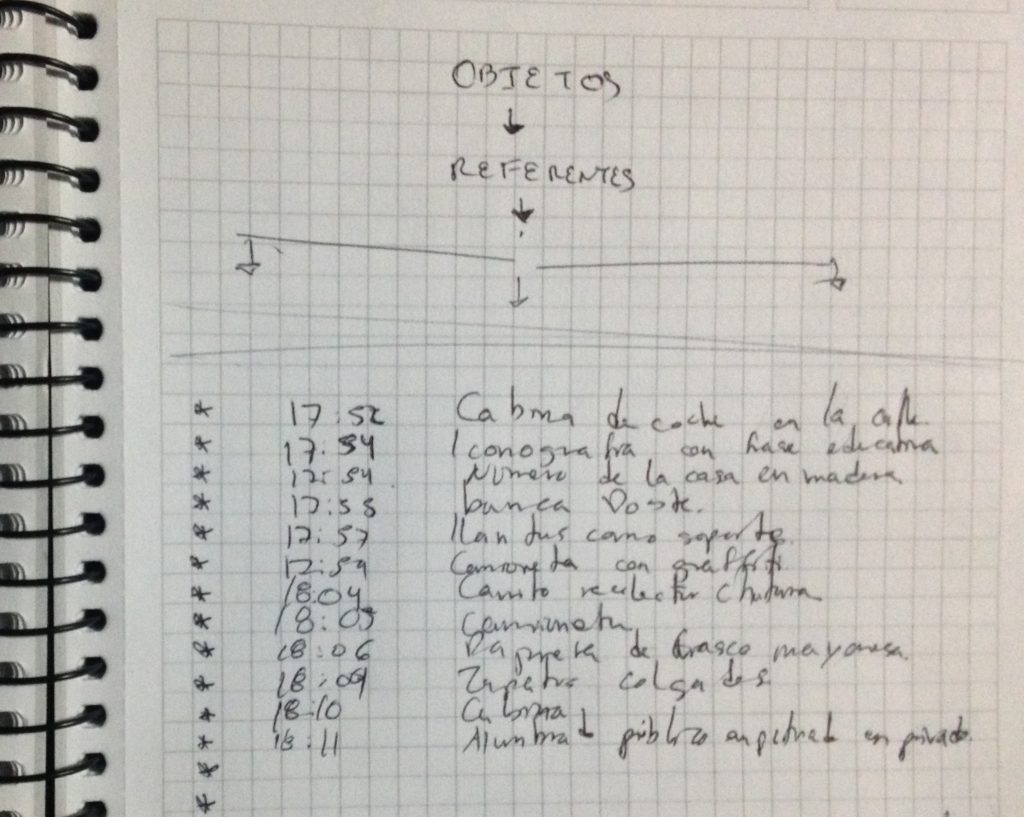 OBJETOS
REFERENTES
* 17:52 Cabina de coche en la calle.
* 17:54 Iconografia con frase educativa
* 17:54 Número de la casa en madera
* 17:55 banca Poste.
* 17:57 llantas como soporte
* 17:59 Camioneta con graffiti
* 18:04 Carrito recolector
* 18:05 Camioneta
* 18:06 Papelera de frasco mayonesa.
* 18:09 Zapatos colgados
* 18:10 Cabina
* 18:11 Alumbrad público en privado.
*
*